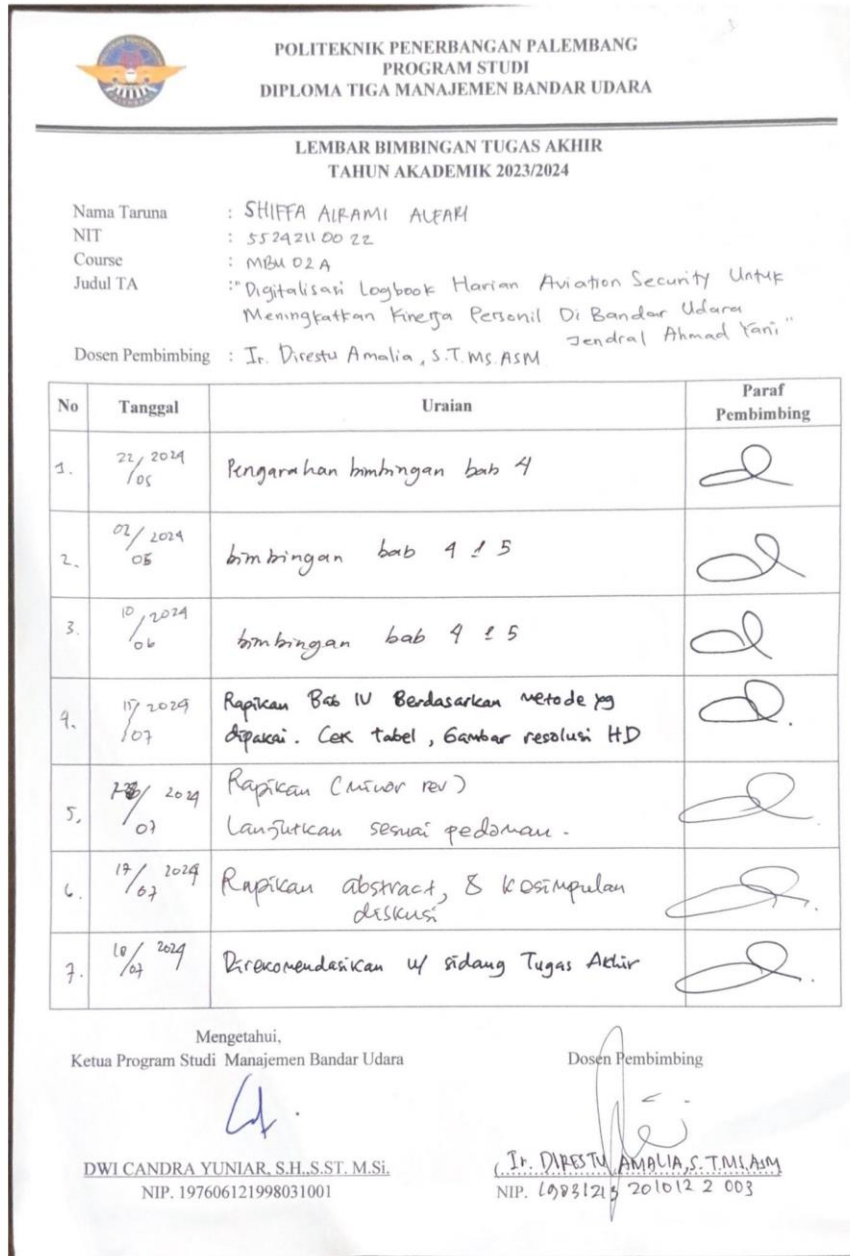 POLITEKNIK PENERBANGAN PALEMBANG
PROGRAM STUDI
DIPLOMA TIGA MANAJEMEN BANDAR UDARA
LEMBAR BIMBINGAN TUGAS AKHIR
TAHUN AKADEMIK 2023/2024
Nama Taruna : SHIFFA AIRAMI ALFARI
NIT : 5524211 00 22
Course : MBU 02 A
Judul TA : "Digitalisasi Logbook Harian Aviation Security Untuk
Meningkatkan Kinerja Personil Di Bandar Udara
Jendral Ahmad Yani"
Dosen Pembimbing : Ir. Direstu Amalia, S.T. MS. ASM
No Tanggal Uraian Paraf
Pembimbing
1. 22/05 2024 Pengarahan bimbingan bab 4
2. 02/ 2024 bimbingan bab 4 & 5
3. 10/06 2024 bimbingan bab 4 & 5
4. 15/07 2024 Rapikan Bab IV Berdasarkan metode yg
dipakai. Cek tabel, Gambar resolusi HD
5. /07 2024 Rapikan (Minor rev)
Lanjutkan sesuai pedoman.
6. 17/07 2024 Rapikan abstract, & kesimpulan
diskusi
7. 18/07 2024 Direkomendasikan u/ sidang Tugas Akhir
Mengetahui,
Ketua Program Studi Manajemen Bandar Udara
Dosen Pembimbing
DWI CANDRA YUNIAR, S.H.,S.ST. M.Si.
NIP. 197606121998031001
(Ir. DIRESTU AMALIA, S.T. MS. ASM
NIP. 19831213 201012 2 003